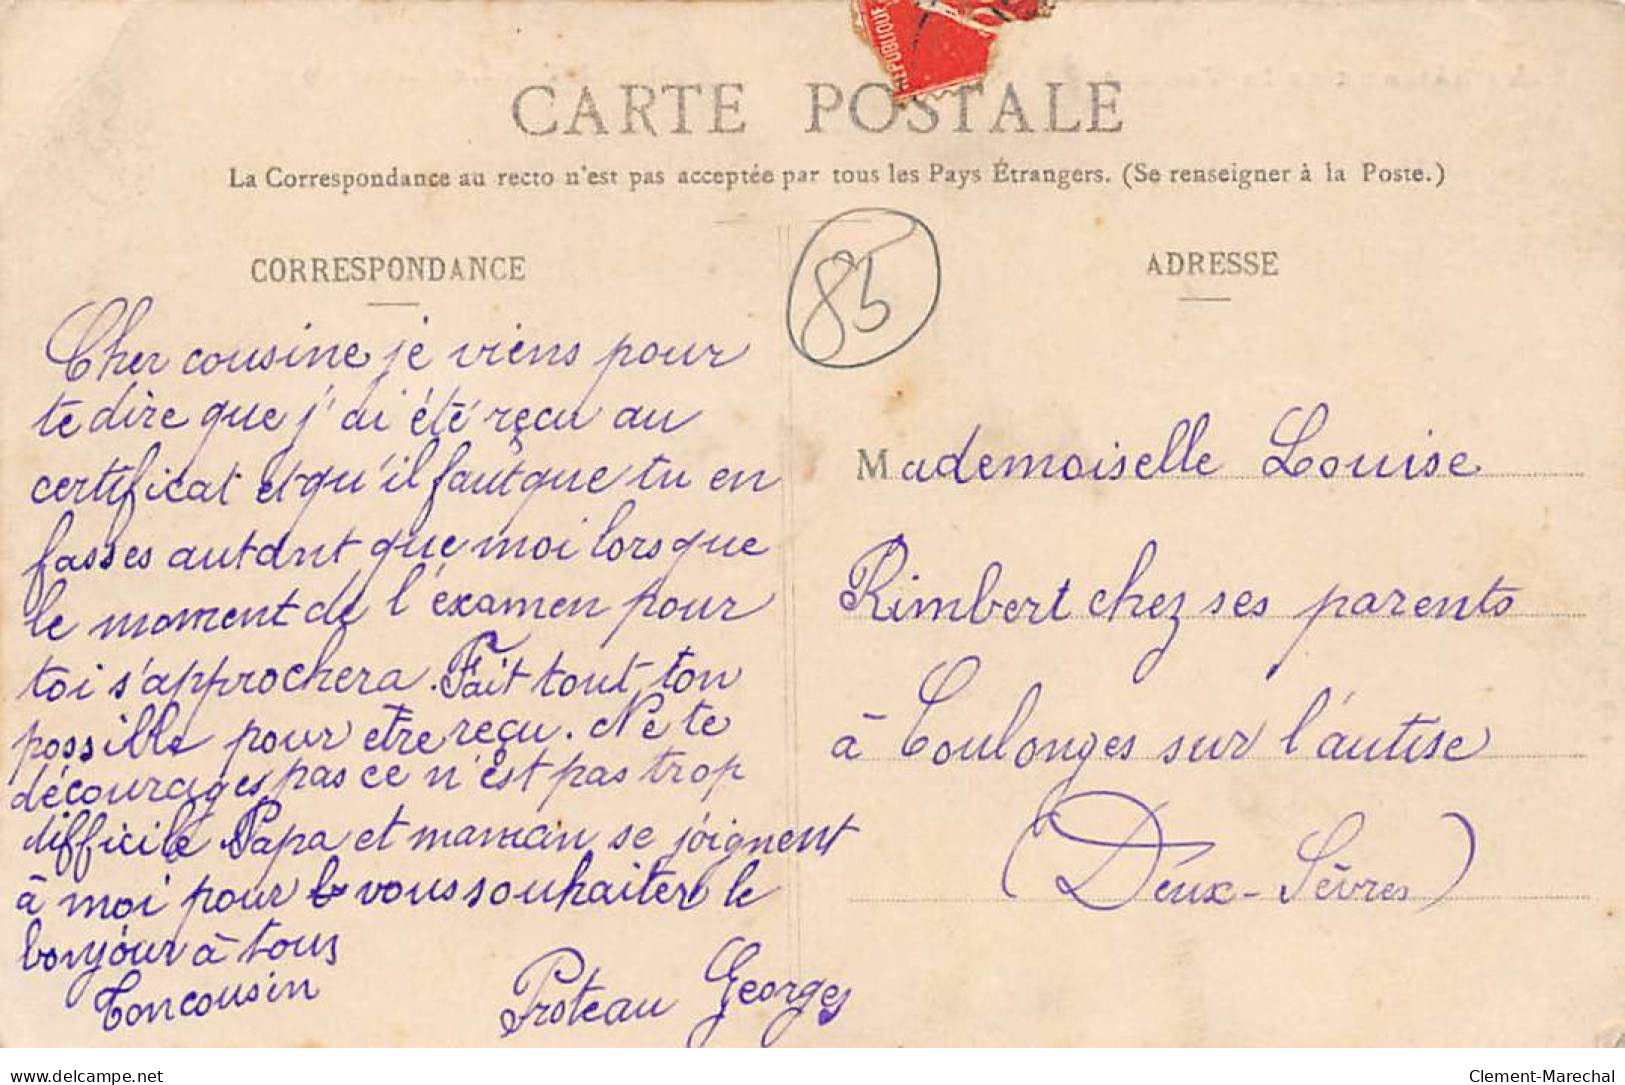 RÉPUBLIQUE
CARTE POSTALE
La Correspondance au recto n'est pas acceptée par tous les Pays Étrangers. (Se renseigner à la Poste.)
85
CORRESPONDANCE
Cher cousine je viens pour
te dire que j'ai été reçu au
certificat et qu'il faut que tu en
fasses autant que moi lorsque
le moment de l'éxamen pour
toi s'approchera. Fait tout ton
possible pour etre reçu. Ne te
décourages pas ce n'est pas trop
difficile Papa et maman se joignent
à moi pour vous souhaiter le
bonjour à tous
Ton cousin
Proteau Georges
ADRESSE
Mademoiselle Louise
Rimbert chez ses parents
à Coulonges sur l'autise
(Deux-Sèvres)
www.delcampe.net
Clement-Marechal